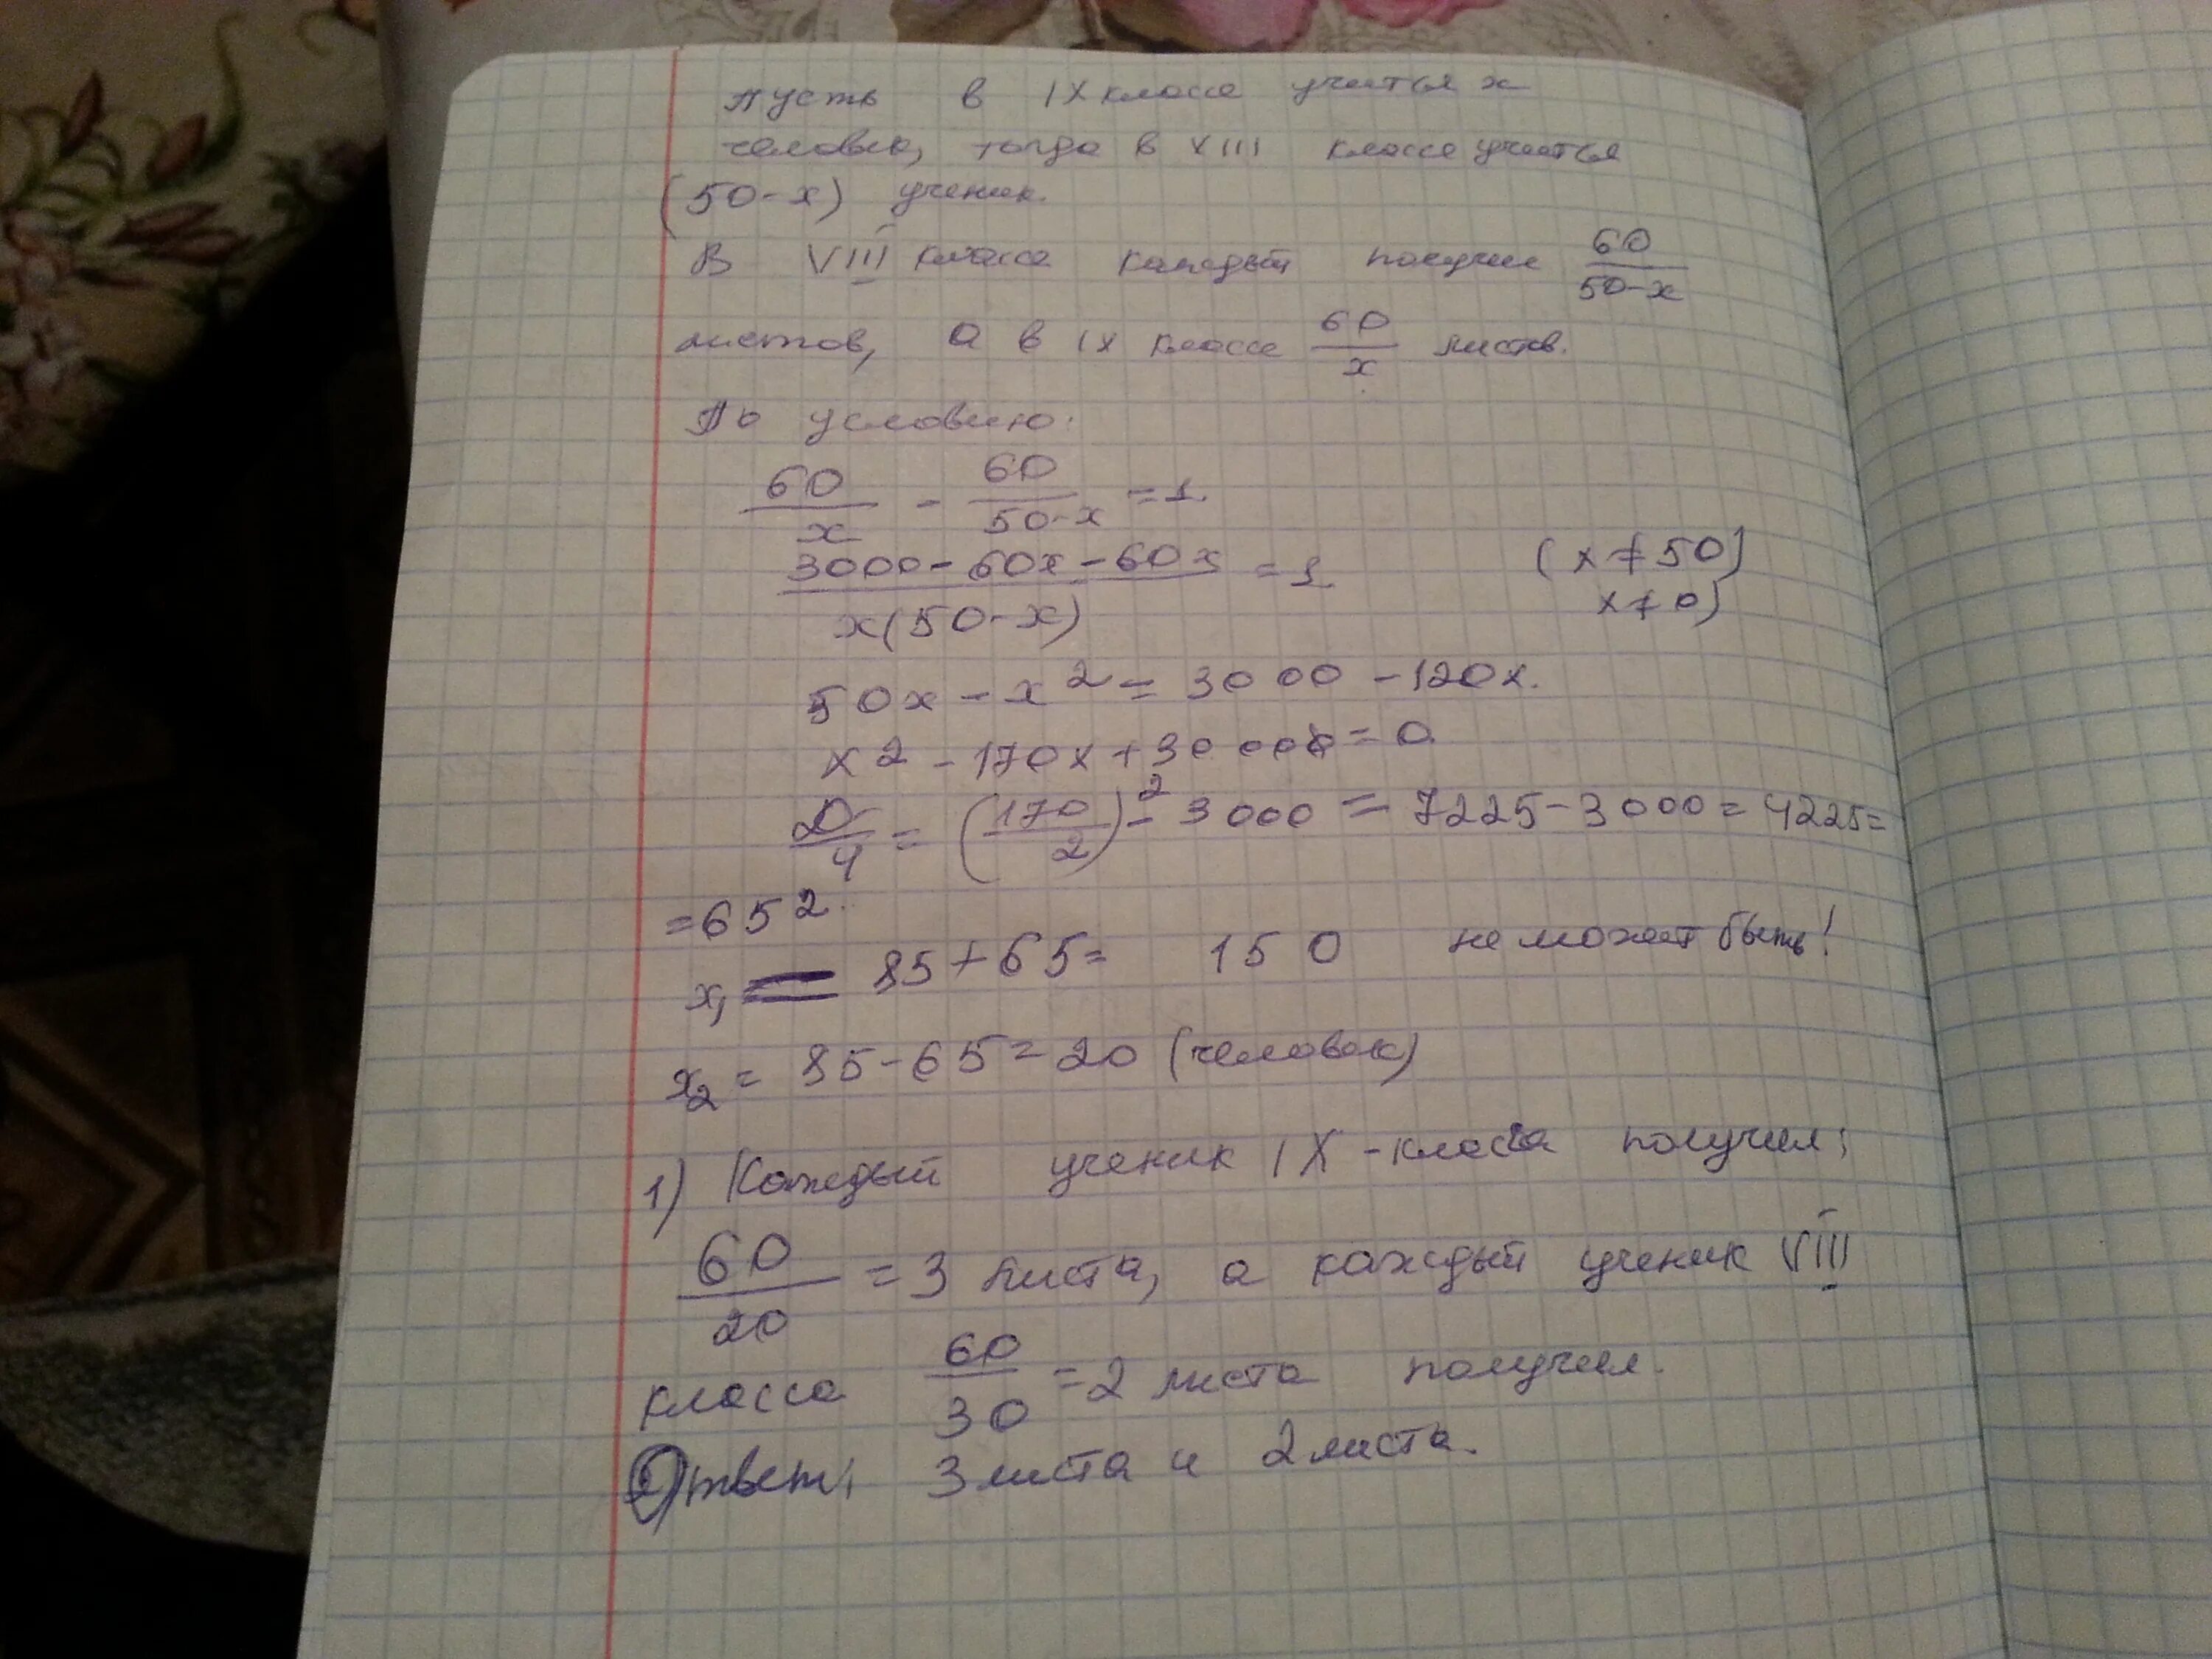 Пусть в IX классе учится x
человек, тогда в XIII классе учится
(50-x) ученик.
В VIII классе каждый получил 60/(50-x)
листов, а в IX классе 60/x листов.
По условию:
60/x - 60/(50-x) = 1.
(3000-60x-60x)/(x(50-x)) = 1. (x≠50)
x≠0)
50x - x² = 3000 - 120x.
x² - 170x + 3000 = 0.
D/4 = (170/2)² - 3000 = 7225 - 3000 = 4225 =
= 65².
x₁ = 85 + 65 = 150 не может быть!
x₂ = 85 - 65 = 20 (человек)
1) Каждый ученик IX - класса получил:
60/20 = 3 листа, а каждый ученик VIII
класса 60/30 = 2 листа получил.
Ответ: 3 листа и 2 листа.